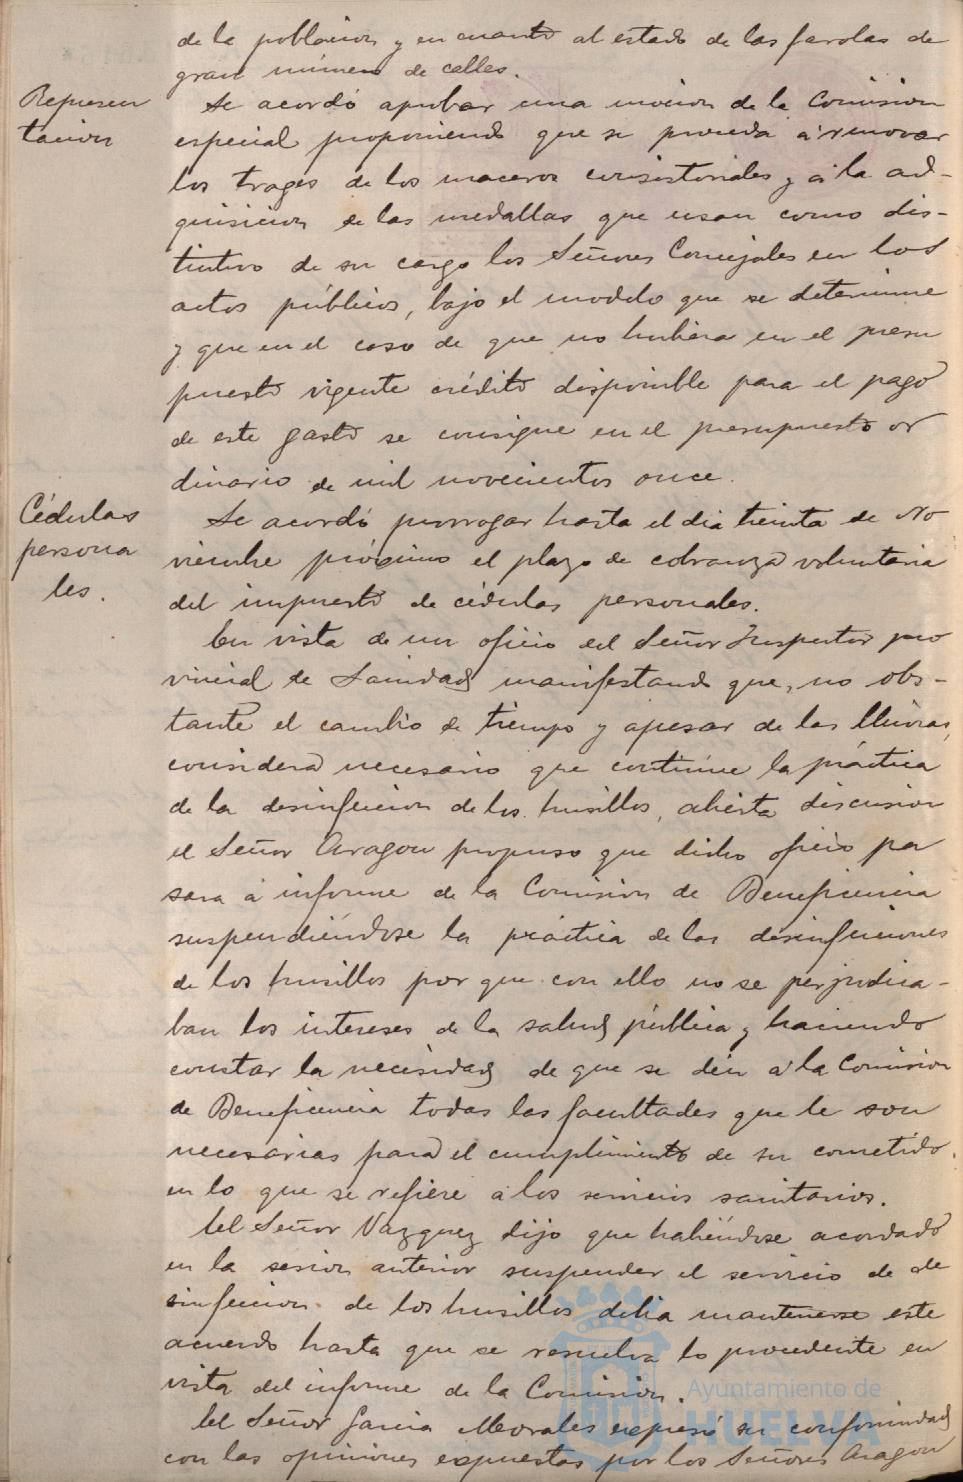 de la poblacion y en cuanto al estado de las farolas de
gran número de calles.
Represen
tacion
Se acordó aprobar una mocion de la Comision
especial proponiendo que se proceda á renovar
los trages de los maceros consistoriales y á la ad-
quisicion de las medallas que usan como dis-
tintivo de su cargo los Señores Concejales en los
actos públicos, bajo el modelo que se determine
y que en el caso de que no hubiera en el presu
puesto vigente crédito disponible para el pago
de este gasto se consigne en el presupuesto or
dinario de mil novecientos once.
Cédulas
persona
les.
Se acordó prorrogar hasta el dia treinta de No
viembre próximo el plazo de cobranza voluntaria
del impuesto de cédulas personales.
En vista de un oficio del Señor Inspector pro
vincial de Sanidad manifestando que, no obs-
tante el cambio de tiempo y apesar de las lluvias,
considera necesario que continúe la práctica
de la desinfeccion de los husillos, abierta discusion
el Señor Aragon propuso que dicho oficio pa
sara á informe de la Comision de Beneficencia
suspendiéndose la práctica de las desinfecciones
de los husillos por que con ello no se perjudica-
ban los intereses de la salud pública y haciendo
constar la necesidad de que se den á la Comision
de Beneficencia todas las facultades que le son
necesarias para el cumplimiento de su cometido
en lo que se refiere á los servicios sanitarios.
El Señor Vazquez dijo que habiéndose acordado
en la sesion anterior suspender el servicio de de
sinfeccion de los husillos debia mantenerse este
acuerdo hasta que se resuelva lo procedente en
vista del informe de la Comision.
El Señor Garcia Morales expresó su conformidad
con las opiniones expuestas por los Señores Aragon
Ayuntamiento de
HUELVA